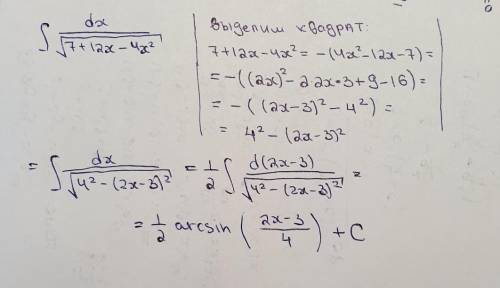 ∫ dx / √(7+12x-4x²)
выделим квадрат:
7+12x-4x² = -(4x²-12x-7) =
= -((2x)²-2·2x·3+9-16) =
= -((2x-3)²-4²) =
= 4²-(2x-3)²
= ∫ dx / √(4²-(2x-3)²) = 1/2 ∫ d(2x-3) / √(4²-(2x-3)²) =
= 1/2 arcsin((2x-3)/4) + C